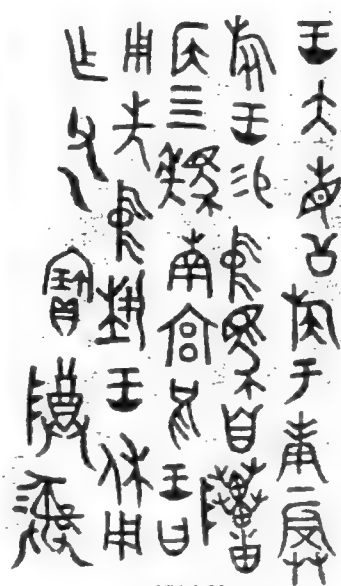 王大省公族于庚𢦚
旅王易中馬自𨽐
侯四𩧢南宮兄王曰
用先中埶王休用
乍父乙寶𬯚彝